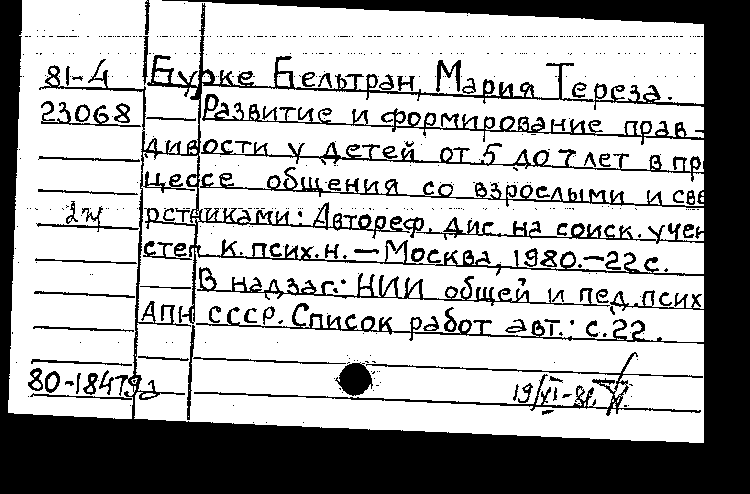 81-4 Бурке Бельтран, Мария Тереза.
23068 Развитие и формирование прав-
дивости у детей от 5 до 7 лет в пр
цессе общения со взрослыми и све
2 рстниками: Автореф. дис. на соиск. учен
степ к. псих. н. — Москва, 1980. — 22 с.
В надзаг.: НИИ общей и пед. псих
АПН СССР. Список работ авт.: с. 22.
80-18479а 19/XI-81.